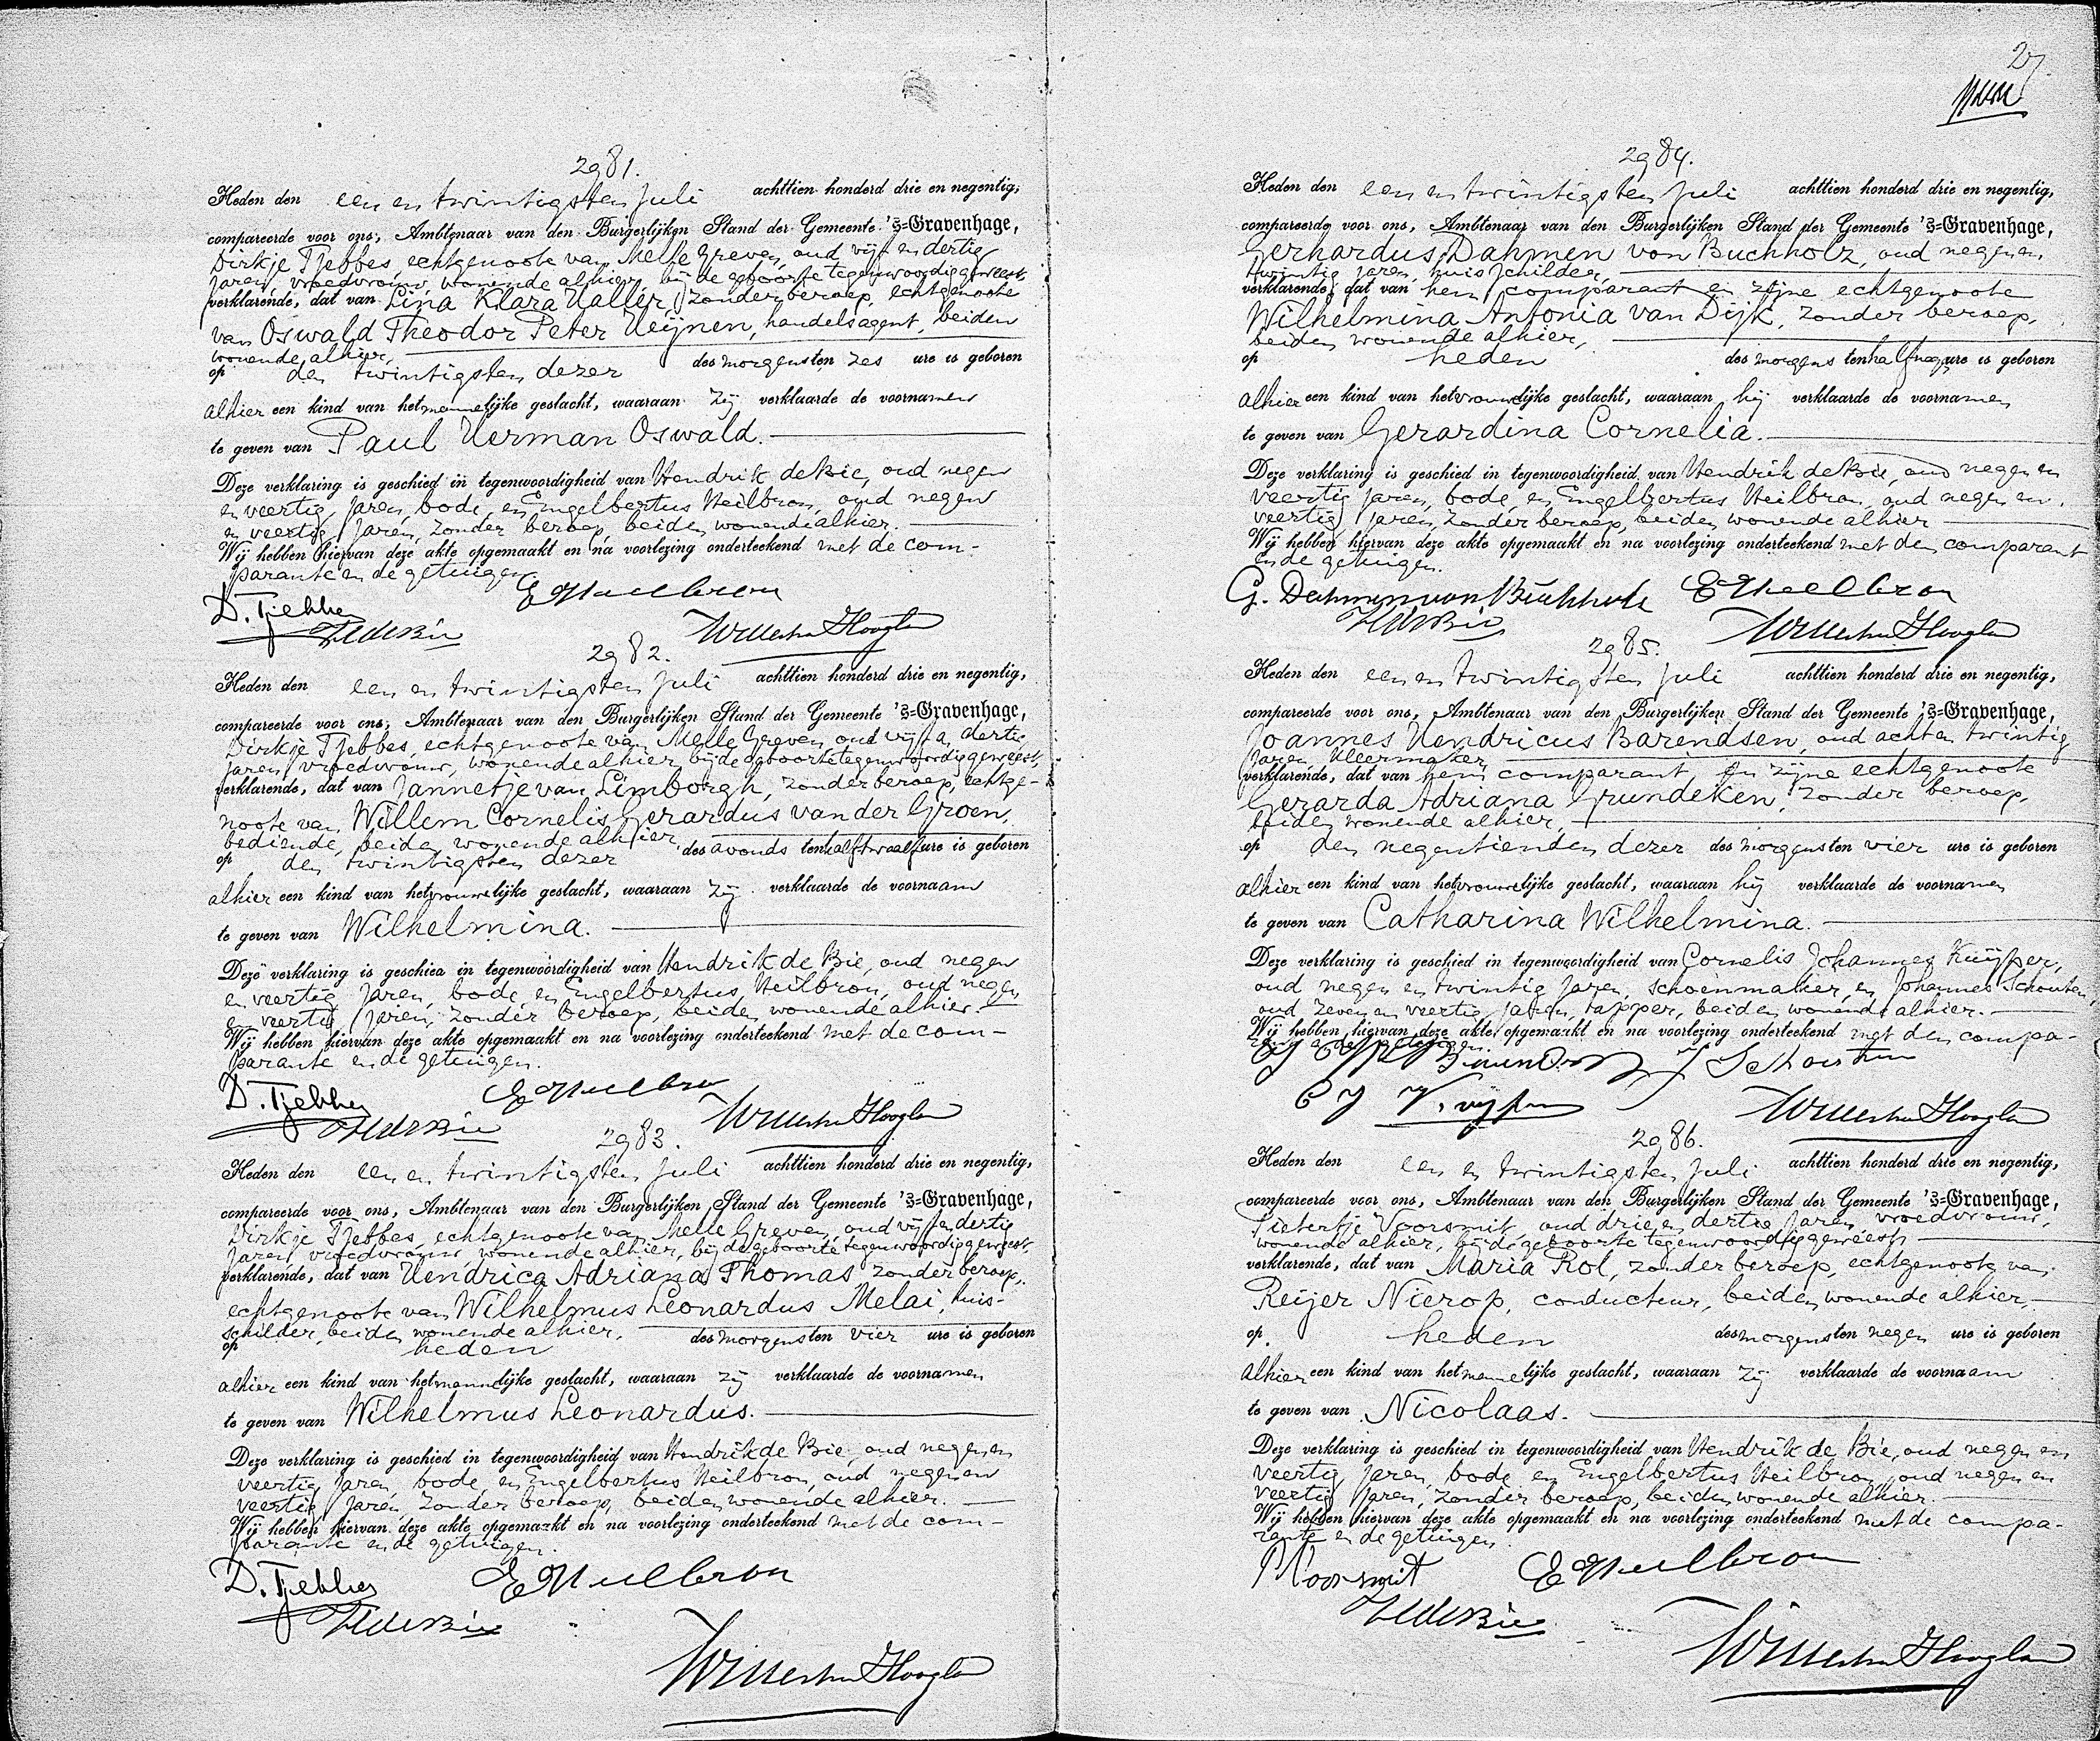 2981.
Heden den een en twintigsten Juli achttien honderd drie en negentig,
compareerde voor ons, Ambtenaar van den Burgerlijken Stand der Gemeente 's-Gravenhage,
Dirkje Tjebbes, echtgenoote van Melle Greven, oud vijf en dertig
jaren, vroedvrouw, wonende alhier, bij de geboorte tegenwoordig geweest,
verklarende, dat van Lina Klara Haller, zonder beroep, echtgenoote
van Oswald Theodor Peter Heijnen, handelsagent, beiden
wonende alhier,
op den twintigsten dezer des morgens ten zes ure is geboren
alhier een kind van het mannelijke geslacht, waaraan zij verklaarde de voornamen
te geven van Paul Herman Oswald.
Deze verklaring is geschied in tegenwoordigheid van Hendrik de Bie, oud negen
en veertig jaren, bode, en Engelbertus Heilbron, oud negen
en veertig jaren, zonder beroep, beiden wonende alhier.
Wij hebben hiervan deze akte opgemaakt en na voorlezing onderteekend met de com-
parante en de getuigen.
D. Tjebbes E Heilbron
H de Bie
2982.
Heden den een en twintigsten Juli achttien honderd drie en negentig,
compareerde voor ons, Ambtenaar van den Burgerlijken Stand der Gemeente 's-Gravenhage,
Dirkje Tjebbes, echtgenoote van Melle Greven, oud vijf en dertig
jaren, vroedvrouw, wonende alhier, bij de geboorte tegenwoordig geweest,
verklarende, dat van Jannetje van Limborgh, zonder beroep, echtge-
noote van Willem Cornelis Gerardus van der Groen,
bediende, beiden wonende alhier,
op den twintigsten dezer des avonds ten half twaalf ure is geboren
alhier een kind van het vrouwelijke geslacht, waaraan zij verklaarde de voornaam
te geven van Wilhelmina.
Deze verklaring is geschied in tegenwoordigheid van Hendrik de Bie, oud negen
en veertig jaren, bode, en Engelbertus Heilbron, oud negen
en veertig jaren, zonder beroep, beiden wonende alhier.
Wij hebben hiervan deze akte opgemaakt en na voorlezing onderteekend met de com-
parante en de getuigen.
D. Tjebbes E Heilbron
H de Bie
2983.
Heden den een en twintigsten Juli achttien honderd drie en negentig,
compareerde voor ons, Ambtenaar van den Burgerlijken Stand der Gemeente 's-Gravenhage,
Dirkje Tjebbes, echtgenoote van Melle Greven, oud vijf en dertig
jaren, vroedvrouw, wonende alhier, bij de geboorte tegenwoordig geweest,
verklarende, dat van Hendrica Adriana Thomas, zonder beroep,
echtgenoote van Wilhelmus Leonardus Melai, huis-
schilder, beiden wonende alhier,
op heden des morgens ten vier ure is geboren
alhier een kind van het mannelijke geslacht, waaraan zij verklaarde de voornamen
te geven van Wilhelmus Leonardus.
Deze verklaring is geschied in tegenwoordigheid van Hendrik de Bie, oud negen en
veertig jaren, bode, en Engelbertus Heilbron, oud negen en
veertig jaren, zonder beroep, beiden wonende alhier.
Wij hebben hiervan deze akte opgemaakt en na voorlezing onderteekend met de com-
parante en de getuigen.
D. Tjebbes E Heilbron
H de Bie
27
2984.
Heden den een en twintigsten Juli achttien honderd drie en negentig,
compareerde voor ons, Ambtenaar van den Burgerlijken Stand der Gemeente 's-Gravenhage,
Gerhardus Dahmen von Buchholz, oud negen en
twintig jaren, huisschilder,
verklarende, dat van hem comparant en zijne echtgenoote
Wilhelmina Antonia van Dijk, zonder beroep,
beiden wonende alhier,
op heden des morgens ten half negen ure is geboren
alhier een kind van het vrouwelijke geslacht, waaraan hij verklaarde de voornamen
te geven van Gerardina Cornelia.
Deze verklaring is geschied in tegenwoordigheid van Hendrik de Bie, oud negen en
veertig jaren, bode, en Engelbertus Heilbron, oud negen en
veertig jaren, zonder beroep, beiden wonende alhier
Wij hebben hiervan deze akte opgemaakt en na voorlezing onderteekend met den comparant
en de getuigen.
G. Dahmen von Buchholz E Heilbron
H de Bie
2985.
Heden den een en twintigsten Juli achttien honderd drie en negentig,
compareerde voor ons, Ambtenaar van den Burgerlijken Stand der Gemeente 's-Gravenhage,
Joannes Hendricus Barendsen, oud acht en twintig
jaren, kleermaker,
verklarende, dat van hem comparant, en zijne echtgenoote
Gerarda Adriana Grundeken, zonder beroep,
beiden wonende alhier,
op den negentienden dezer des morgens ten vier ure is geboren
alhier een kind van het vrouwelijke geslacht, waaraan hij verklaarde de voornamen
te geven van Catharina Wilhelmina.
Deze verklaring is geschied in tegenwoordigheid van Cornelis Johannes Kuijper,
oud negen en twintig jaren, schoenmaker, en Johannes Schouten,
oud zeven en veertig jaren, tapper, beiden wonende alhier.
Wij hebben hiervan deze akte opgemaakt en na voorlezing onderteekend met den compa-
rant en de getuigen.
J Schouten
C J Kuijper
2986.
Heden den een en twintigsten Juli achttien honderd drie en negentig,
compareerde voor ons, Ambtenaar van den Burgerlijken Stand der Gemeente 's-Gravenhage,
Pietertje Voorsmit, oud drie en dertig jaren, vroedvrouw,
wonende alhier, bij de geboorte tegenwoordig geweest,
verklarende, dat van Maria Rol, zonder beroep, echtgenoote van
Reijer Nierop, conducteur, beiden wonende alhier,
op heden des morgens ten negen ure is geboren
alhier een kind van het mannelijke geslacht, waaraan zij verklaarde de voornaam
te geven van Nicolaas.
Deze verklaring is geschied in tegenwoordigheid van Hendrik de Bie, oud negen en
veertig jaren, bode, en Engelbertus Heilbron, oud negen en
veertig jaren, zonder beroep, beiden wonende alhier.
Wij hebben hiervan deze akte opgemaakt en na voorlezing onderteekend met de compa-
rante en de getuigen.
P Voorsmit E Heilbron
H de Bie